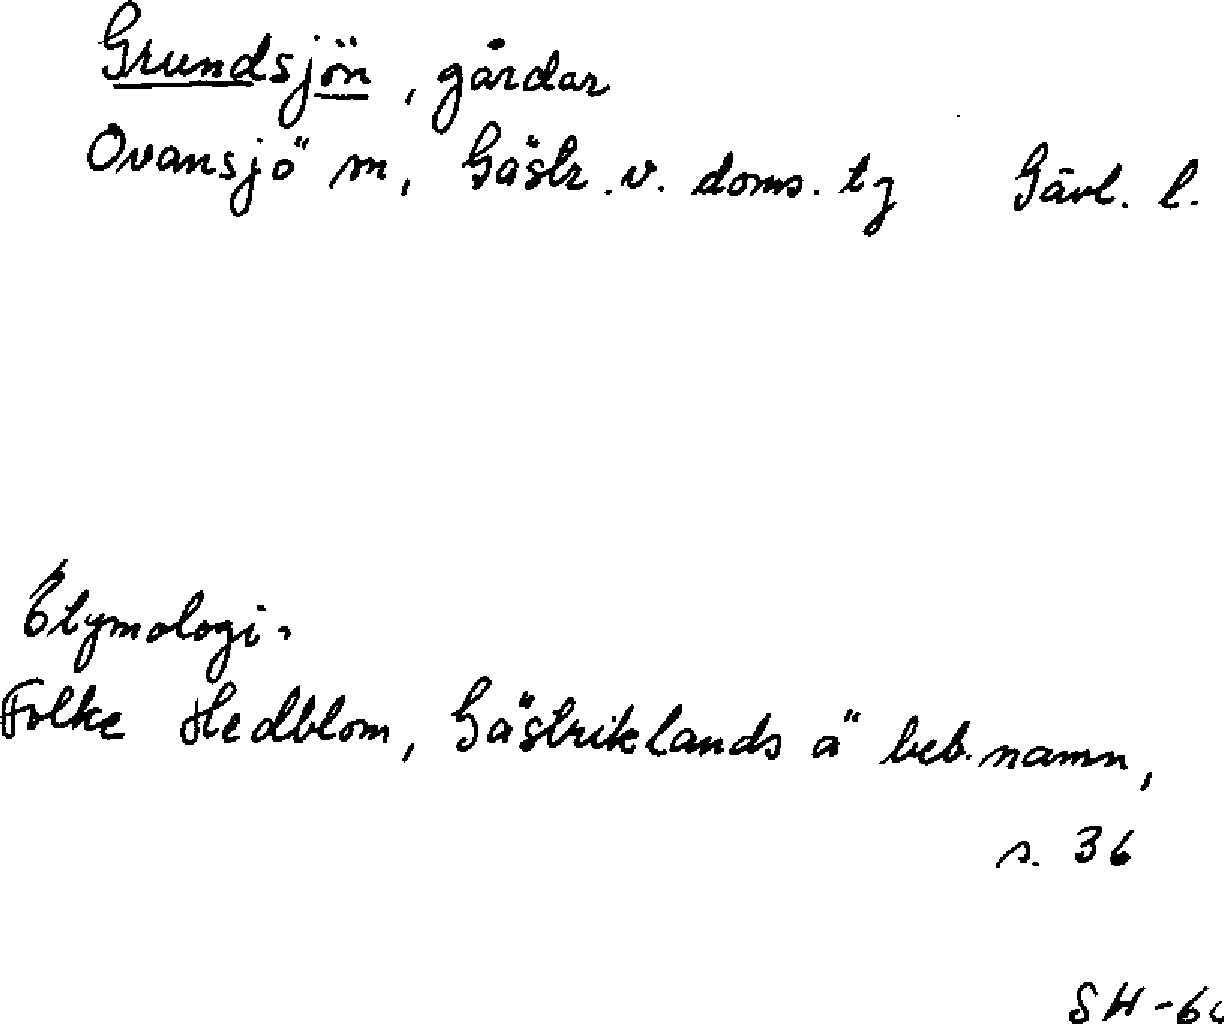 Grundsjön, gårdar
Ovansjö m, Gästr. v. doms. tg Gävl. l.
Etymologi.
Folke Hedblom, Gästriklands ä beb. namn,
s. 36